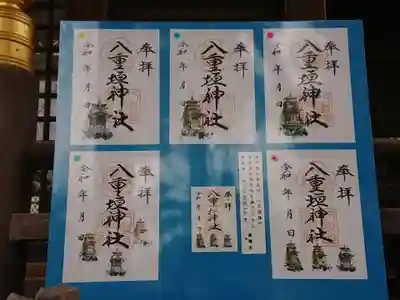 奉拝
八重垣神社
令和 年 月 日
奉拝
八重垣神社
令和 年 月 日
奉拝
八重垣神社
令和 年 月 日
奉拝
八重垣神社
令和 年 月 日
奉拝
八重垣神社
令和 年 月 日
奉拝
八重垣神社
令和 年 月 日